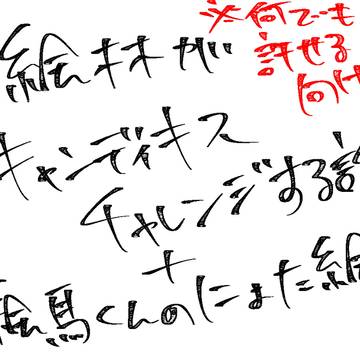 ※何でも
許せる
向け
絵キオが
キャンディキス
チャレンジする話
+
絵馬くんのにょた絵